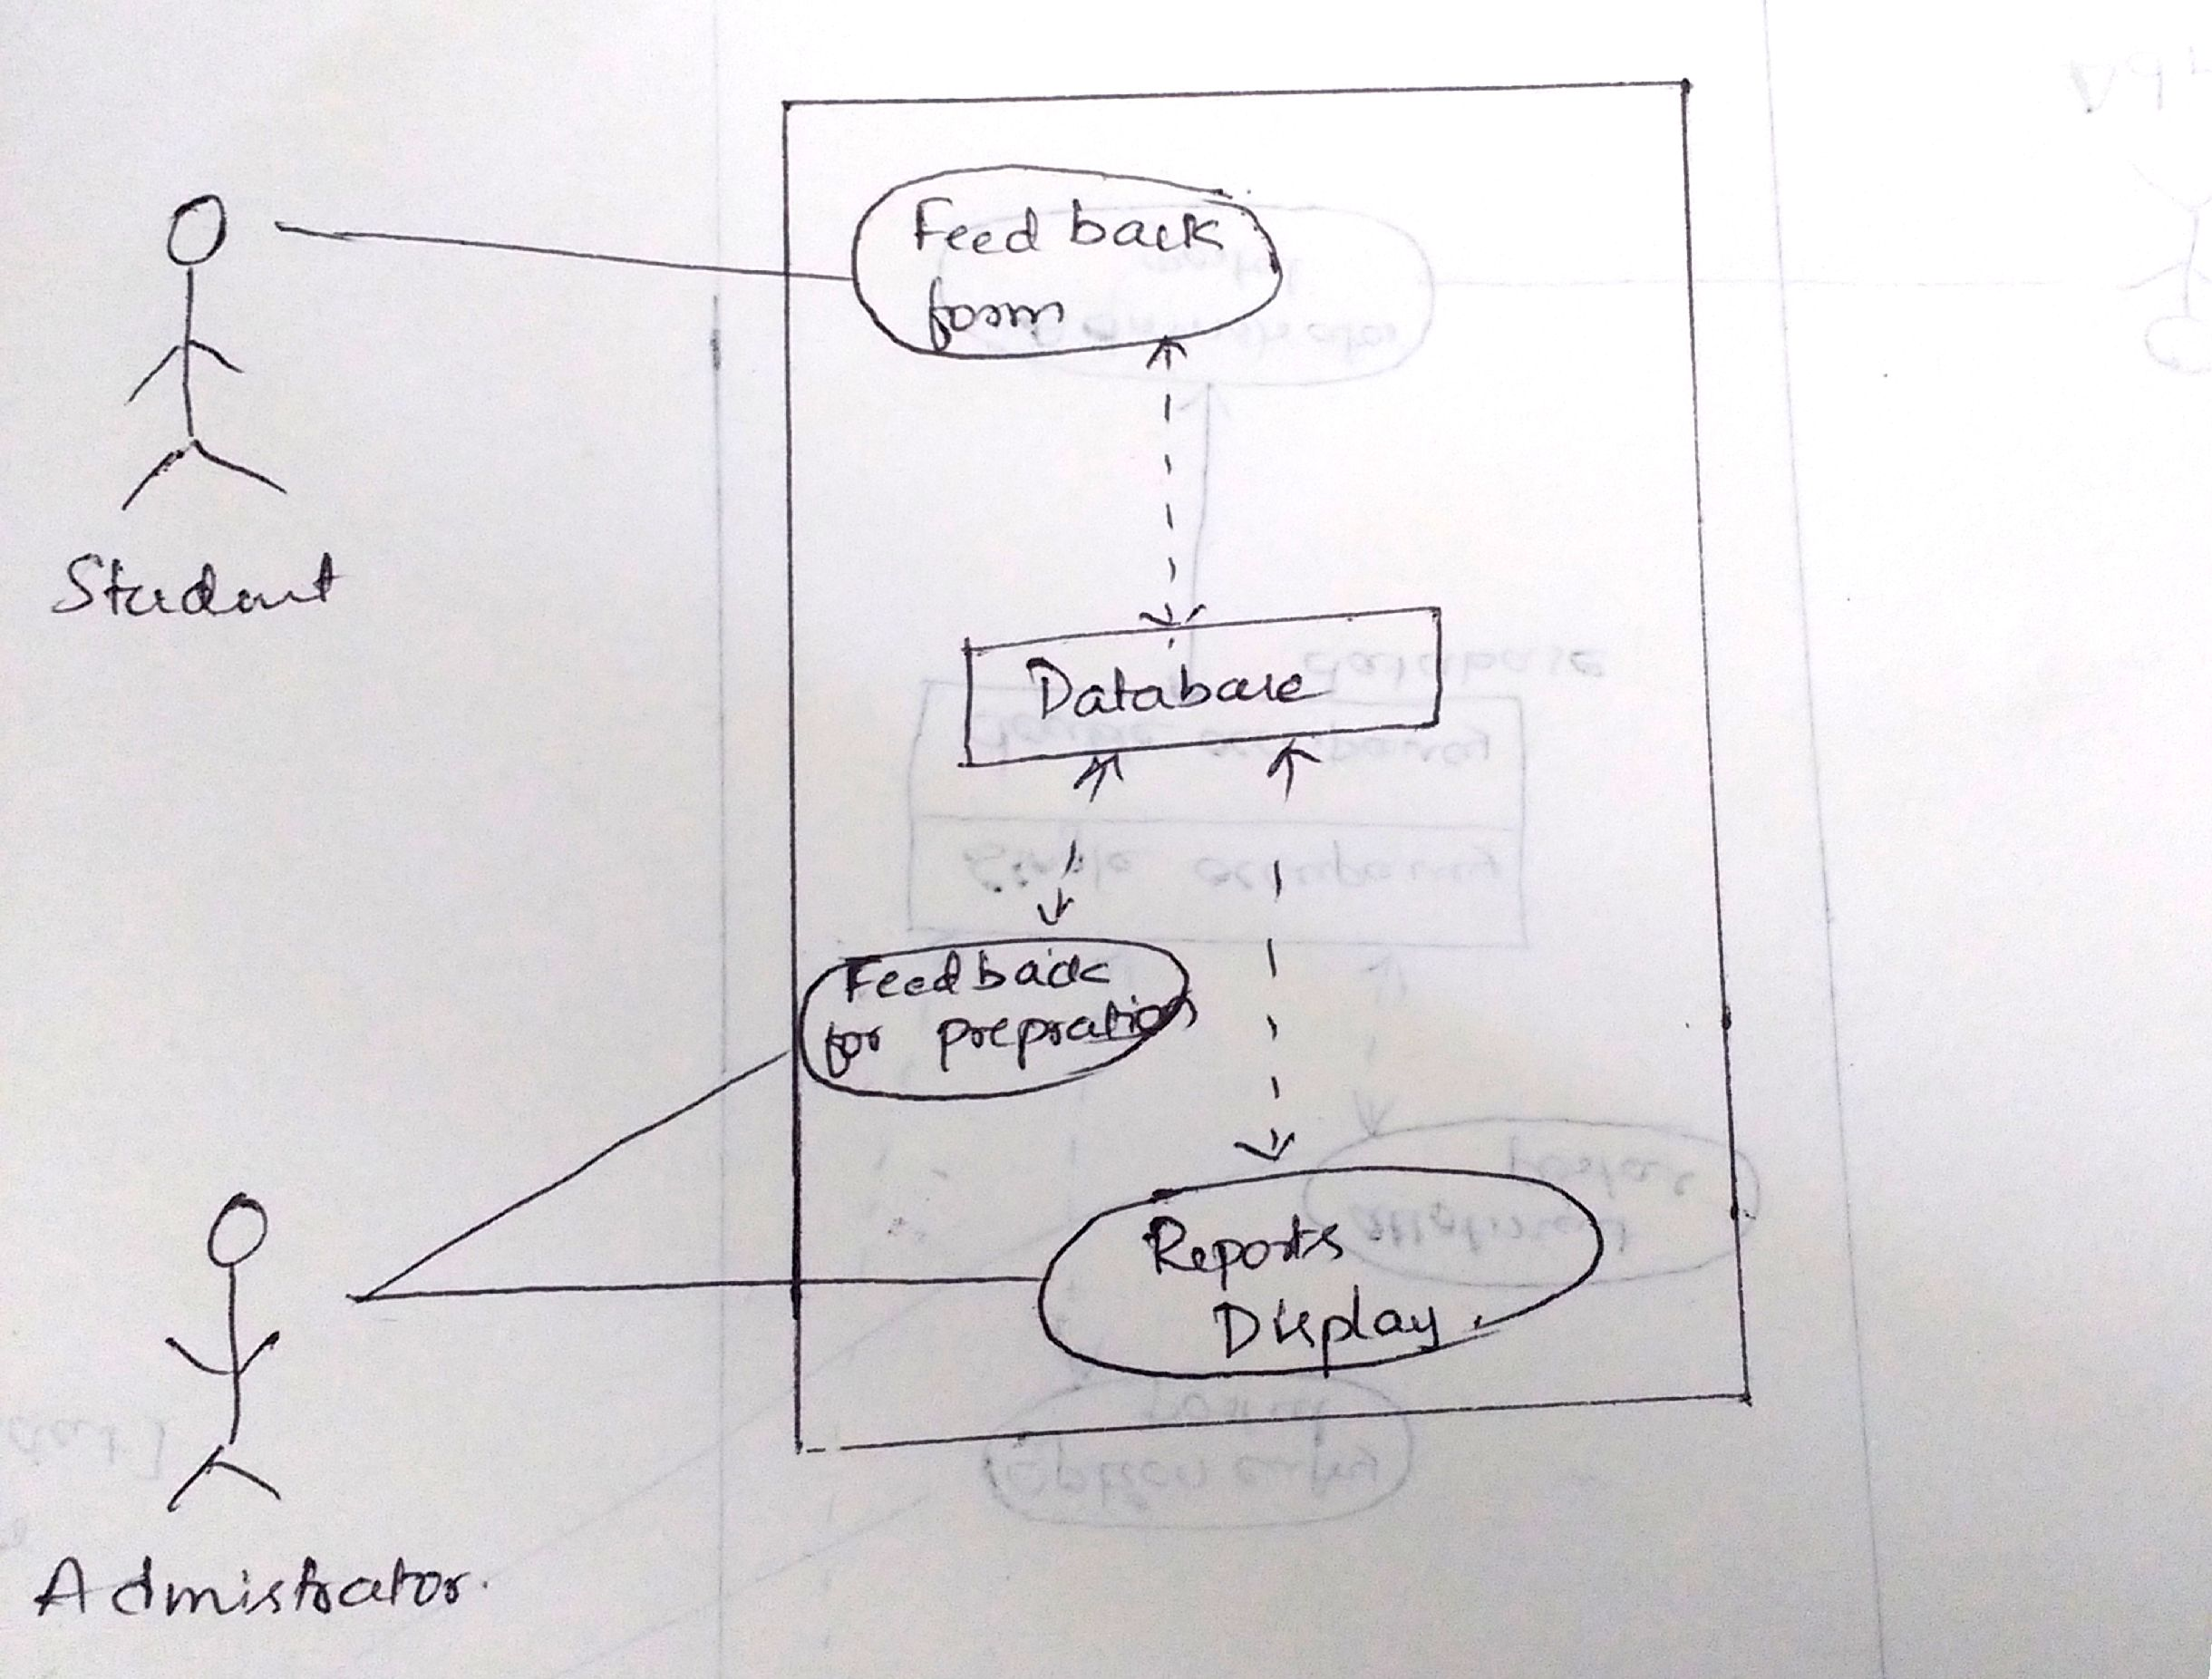 Feedback
form
Student
Database
Feedback
for prepration
Reports
Display.
Admistrator.